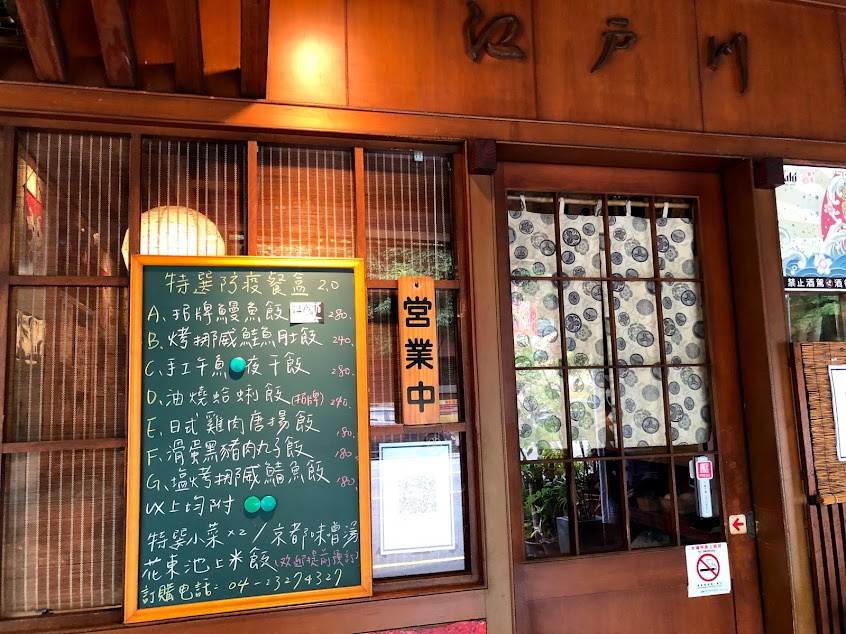 江戸川
特選防疫餐盒 2.0
A、招牌鰻魚飯 280.
B、烤挪威鮭魚肚飯 240.
C、手工午魚 夜干飯 280.
D、油燒蛤蜊飯(招牌) 240.
E、日式雞肉唐揚飯 180.
F、滑蛋黑豬肉丸子飯 180.
G、塩烤挪威鯖魚飯 180.
以上均附
特選小菜x2/京都味噌湯
花東池上米飯(欢迎提前預訂)
訂購电話:04-23274327
営業中
禁止酒駕